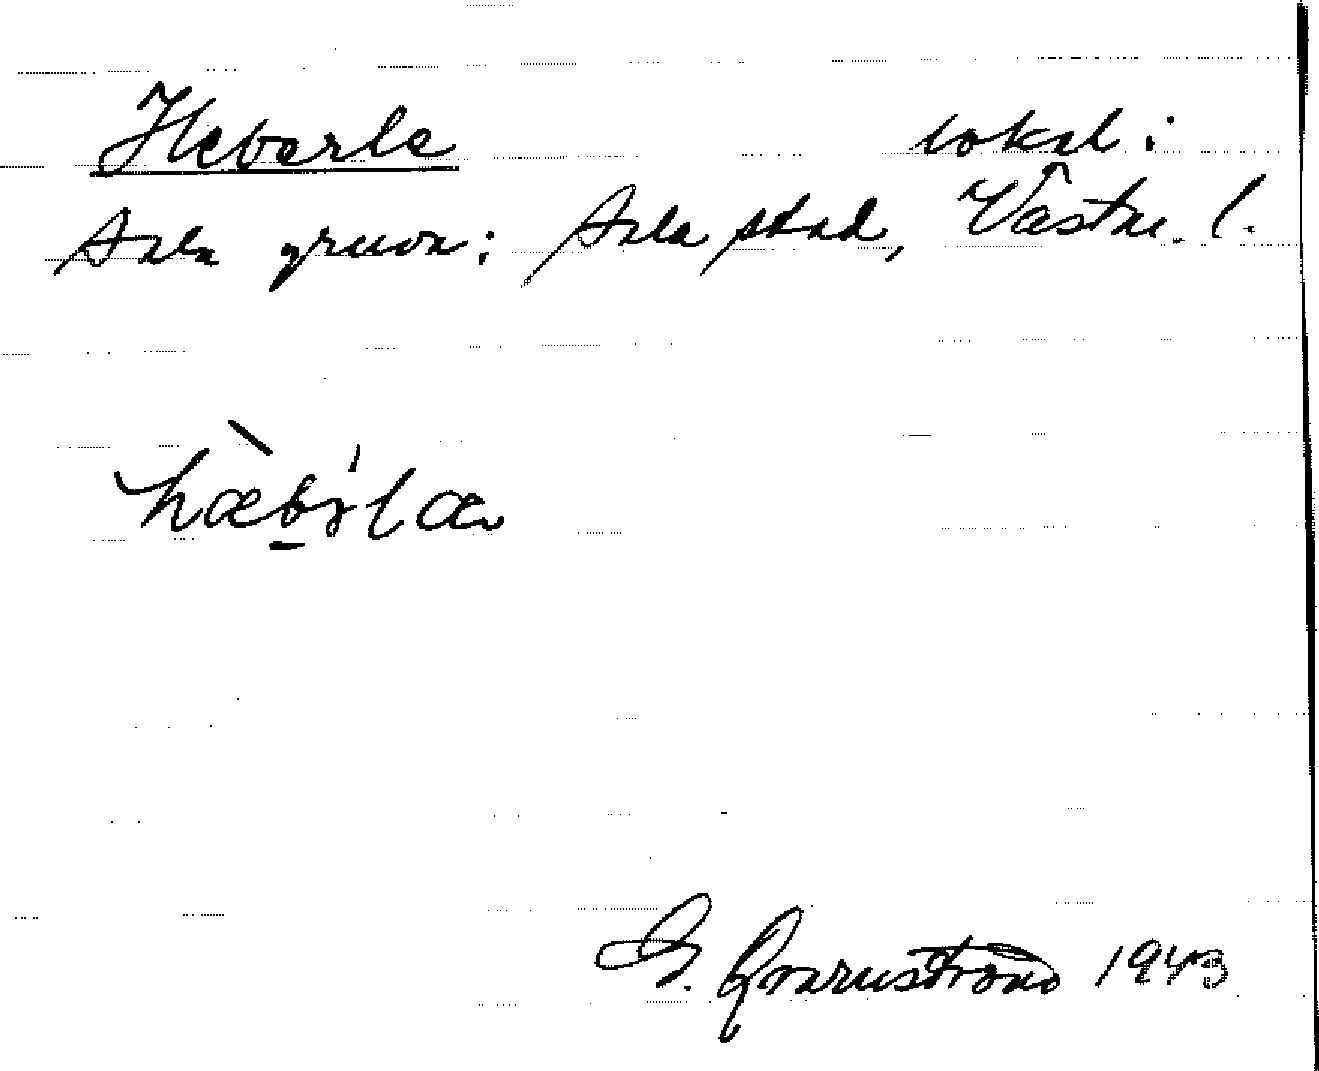 Heberle lokal:
Sala gruva: Sala stad, Västm. l.
hæbılæ
G. Qvarnström 1943